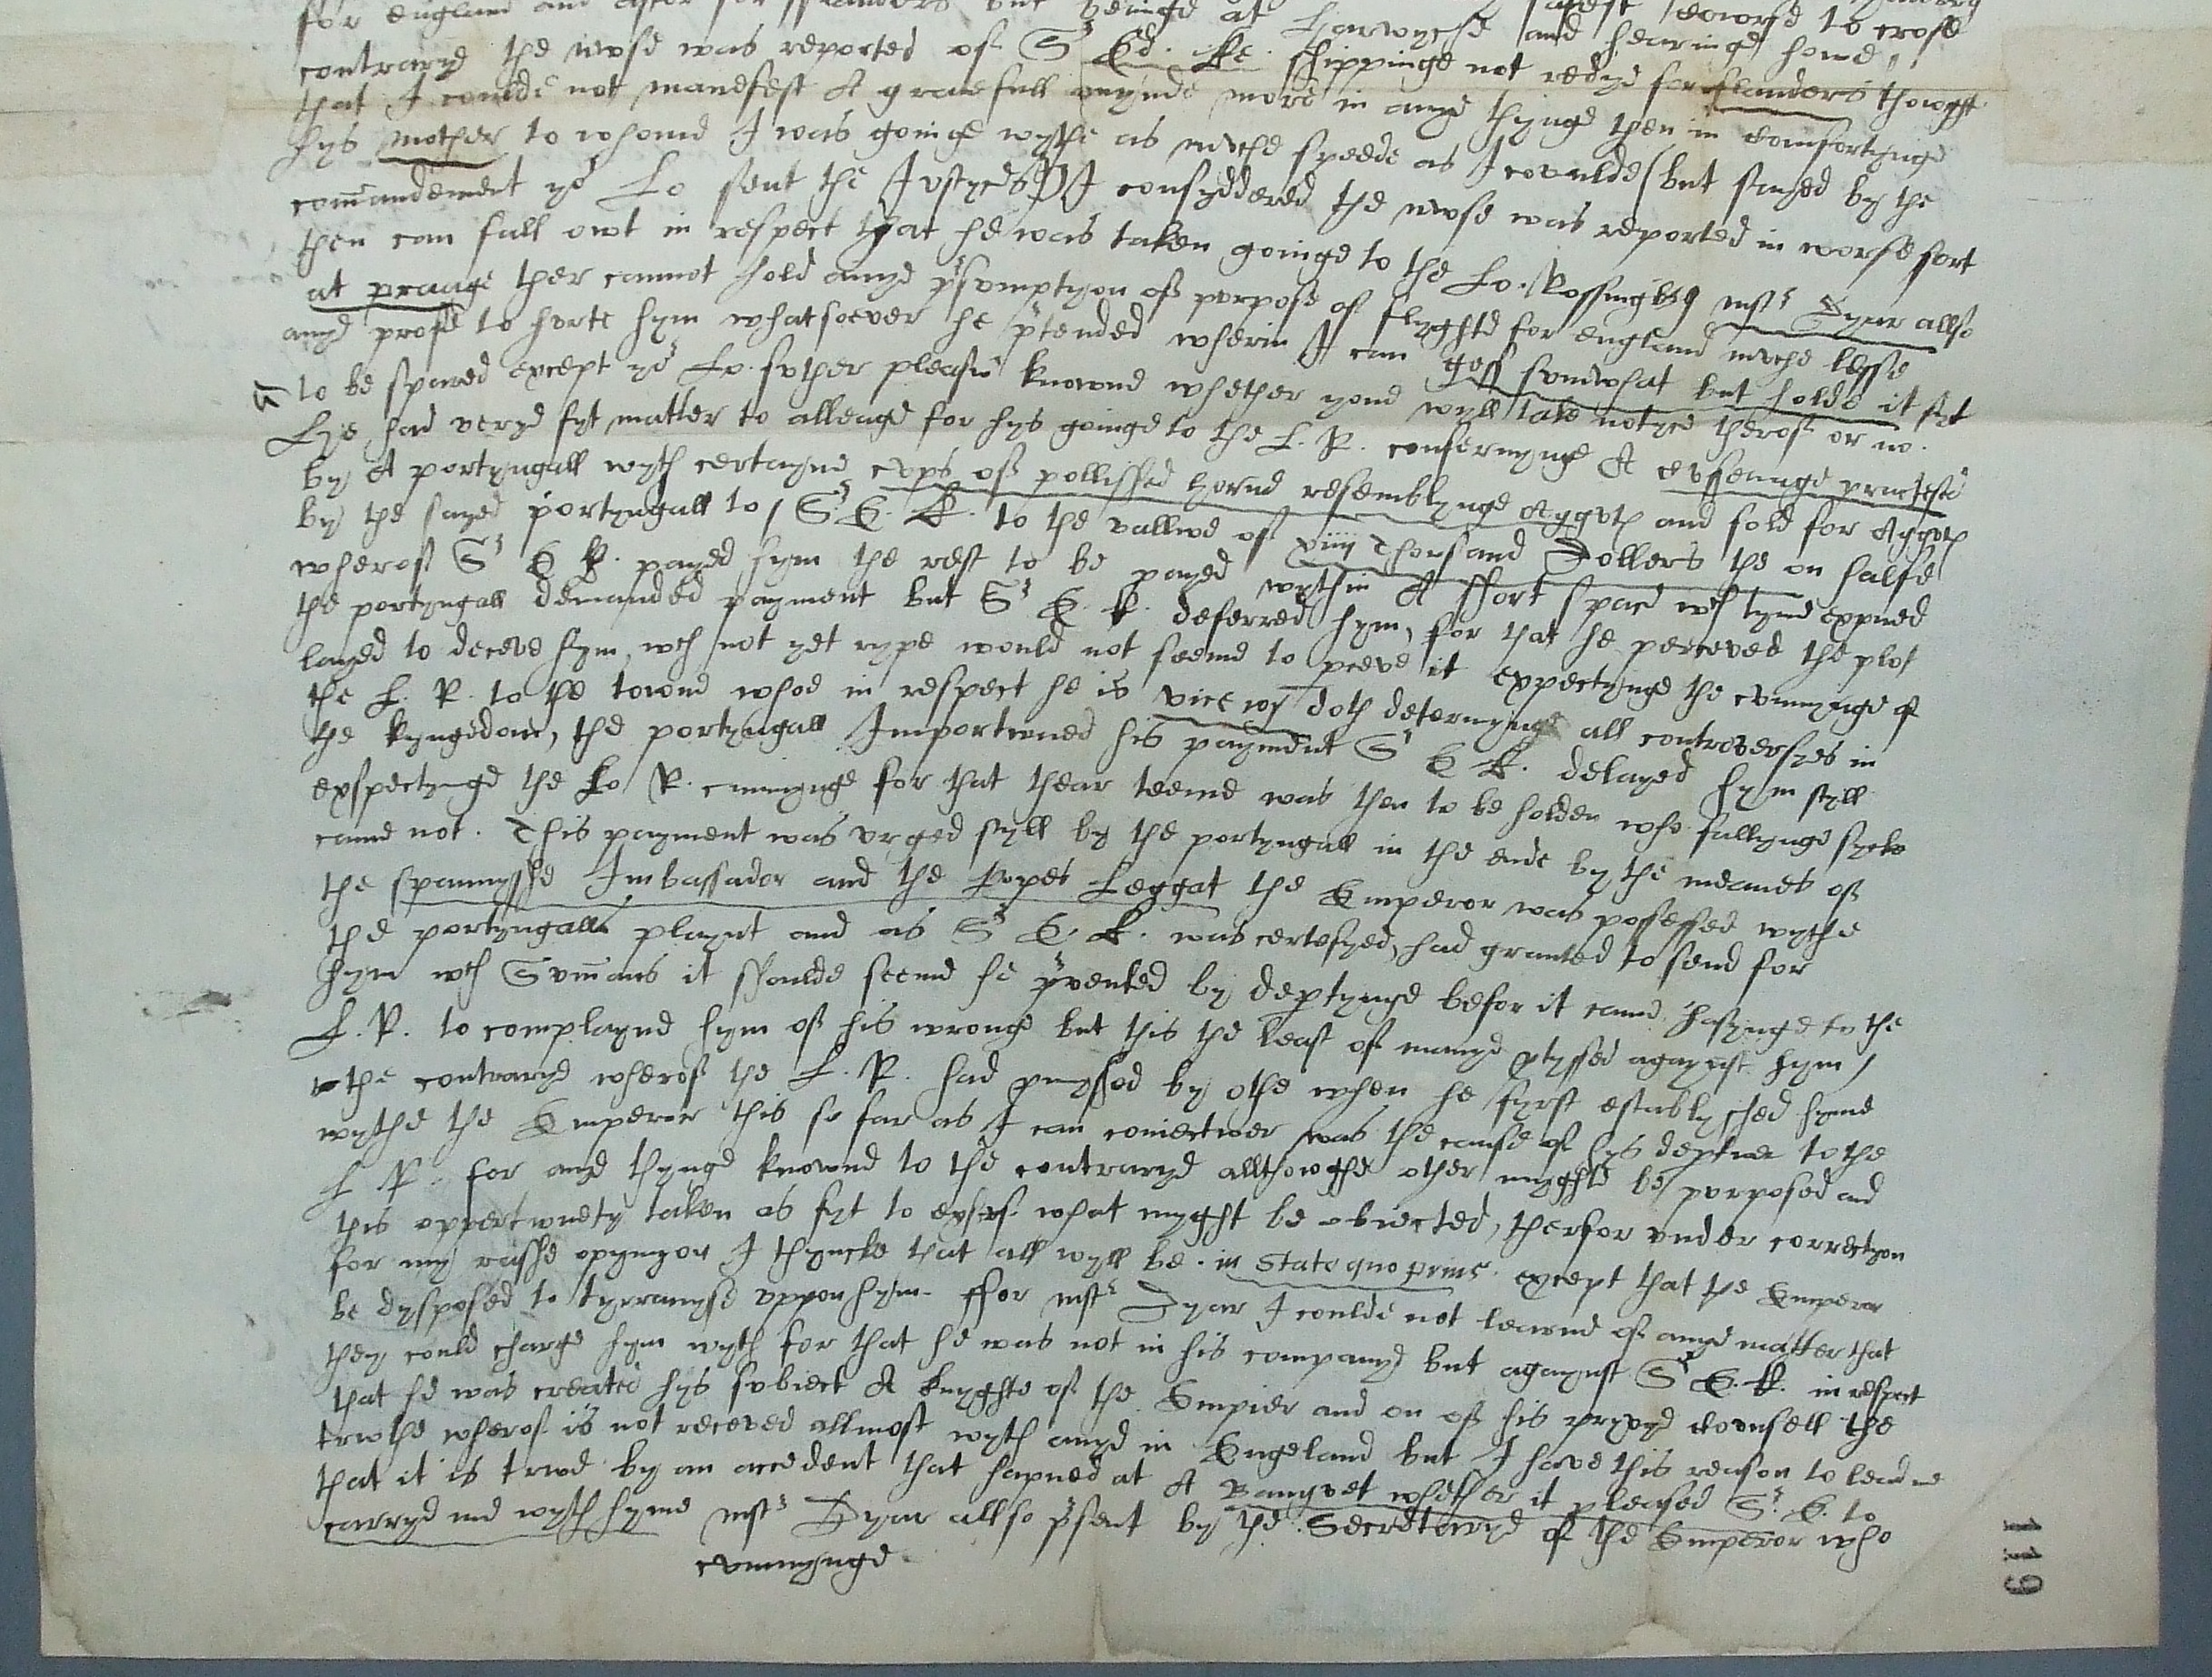 for England and after for fflanders but beinge at Harwyche and hearinge howe
contrarye the nwse was reported of Sr Ed. Ke. shippinge not redye for flanders thowght
that I coulde not manefest A gratefull mynde more in anye thynge then in comfortynge
hys mother to whome I was goinge wythe as muche speede as I coulde (but stayed by the
com̄andement yor Lo sent the Justyces) I consyddered the nwse was reported in worse sort
then can fall owt in respect that he was taken goinge to the Lo. Rossingberg mstr Dyar allso
at prauge ther cannot hold anye p̄sumptyon off purpose of flyghte for England muche lesse
anye profe to hurte hym whatsoever he p̄tended wherin I can gess sumwhat but holde it fyt
to be spared except yor Lo. futher pleasur knowne whether yowe wyll take notyce therof or no.
He had verye fyt matter to alleage for hys goinge to the L. R. consernynge A cussenage practesed
by A portyngall wyth certayne cups off pollisshed horne resemblynge Aggots and sold for Aggots
by the sayed portyngall to Sr E. K. to the vallwe of xiiij Thousand Dollers the on halfe
wherof Sr E K. payed hym the rest to be payed wythin A short space wch tyme expired
the portyngall demanded payment but Sr E. K. deferred hym, for that he perceved the plot
layed to deceve hym, wch not yet rype would not seeme to perceve it expectynge the cummynge of
the L. R. to the towne whoe in respect he is vice roy doth determyne all controversyes in
the kyngedome, the portyngall Importuned his payment Sr E K. delayed hym styll
exspectynge the Lo R. cummynge for that thear teerme was then to be holden who fallynge sycke
came not. This payment was urged styll by the portyngall in the ende by the meanes off
the spannysshe Imbassador and the Popes Leggat the Emperor was possessed wythe
the portyngalls playnt and as Sr E. K. was certefyed, had granted to send for
hym wch Sum̄ans it shoulde seeme he p̄vented by departynge befor it came hastynge to the
L. R. to complayne hym of his wronge but this the least of manye practysed agaynst hym
the contrarye wherof the L. R. had promyssed by othe when he fyrst establyshed hyme
wythe the Emperor this so far as I can coniectuer was the cause of hys departuer to the
L R. for anye thynge knowne to the contrarye allthowghe other myghte be purposed and
this oppertunety taken as fyt to what myght be obiected, therfor under correctyon
for my rashe opynyon I thyncke that all wyll be in Statu quo prius except that the Emperor
be dysposed to tyrranyse uppon hym. ffor mstr Dyar I coulde not learne of anye matter that
they could charge hym wyth for that he was not in his companye but agaynst Sr E. K. in respect
that he was created hys subiect A knyghte of the Empier and on off his pryvye counsell the
trwthe wherof is not receved allmost wyth anye in Engeland but I have this reason to lead me
that it is trwe by an accedent that hapned at A Banqvet whether it pleased Sr. E. to
carrye me wyth hyme mstr Dyar allso p̄sent by the Secretarye of the Emperor who
cummynge
119